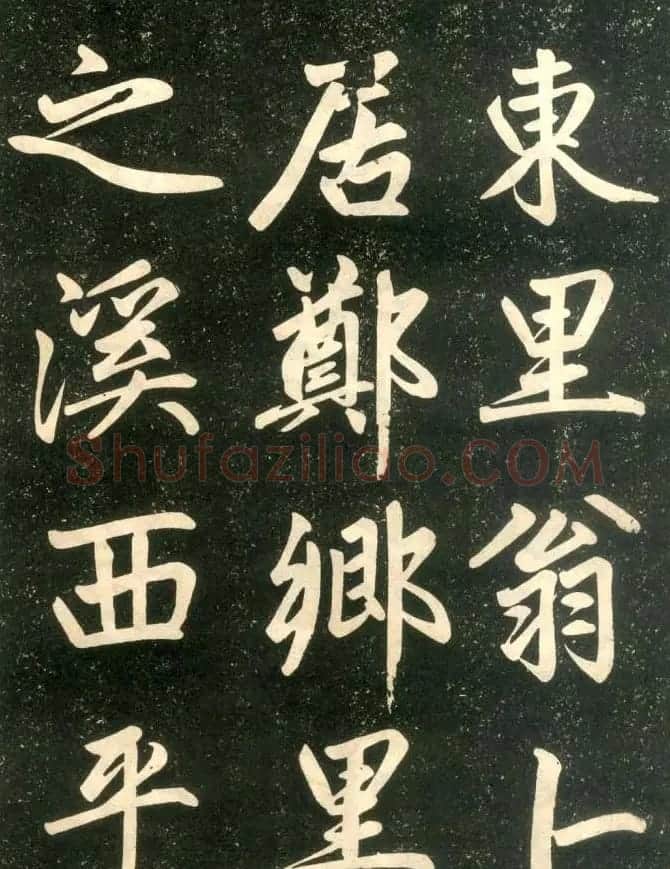 東里翁卜
居鄭鄉里
之溪西平
Shufazilido.COM